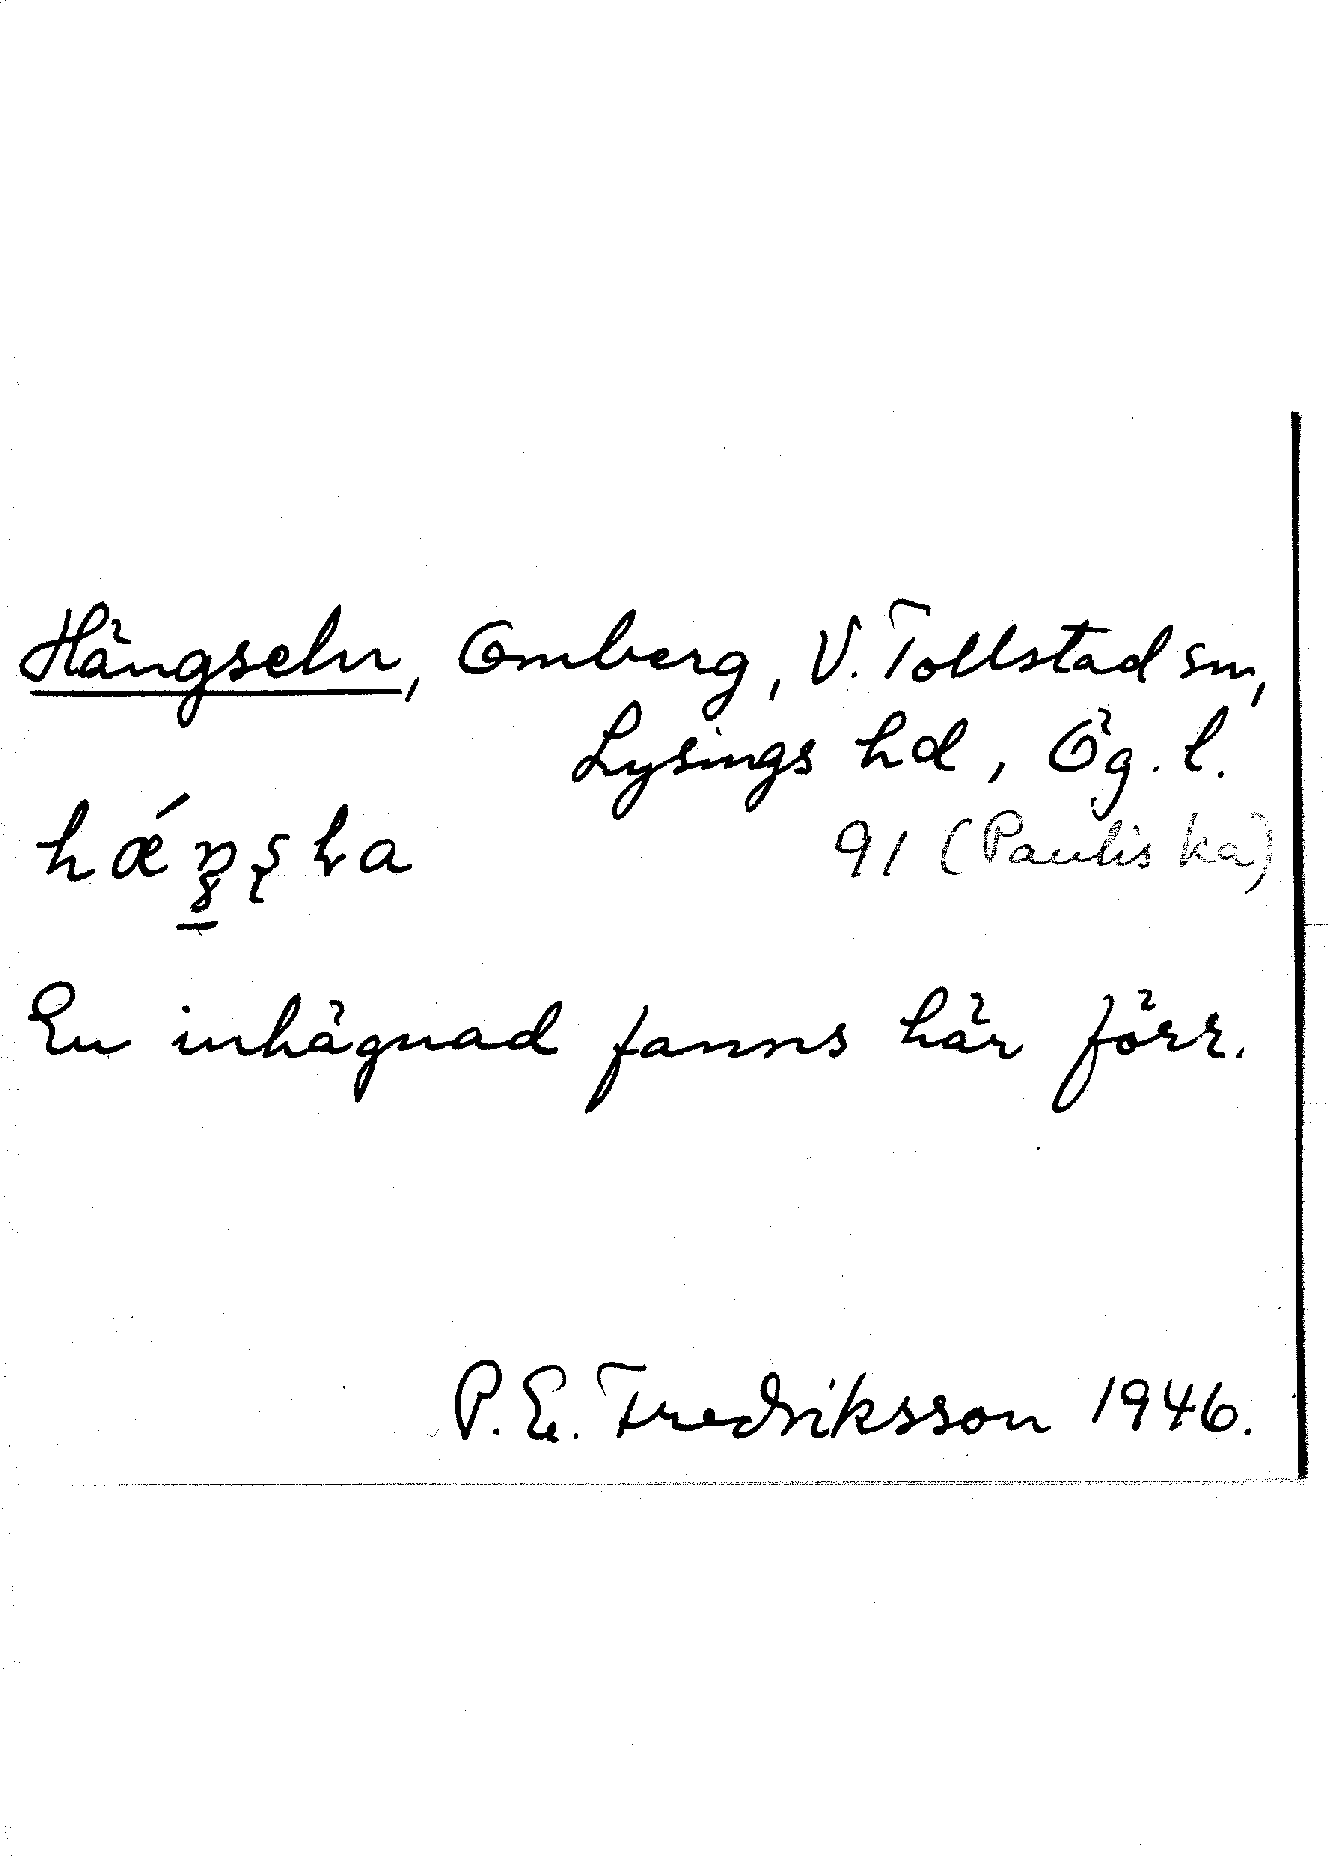 Hängseln, Omberg, V. Tollstad sn,
Lysings hd, Ög. l.
91 (Pauliska)
En inhägnad fanns här förr.
P. E. Fredriksson 1946.